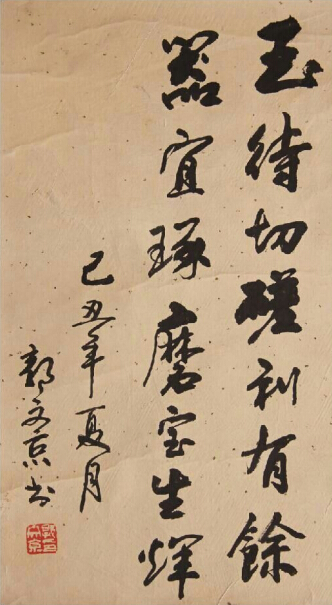 玉待切磋利有餘
器宜琢磨宝生輝
己丑年夏月
郭文京书